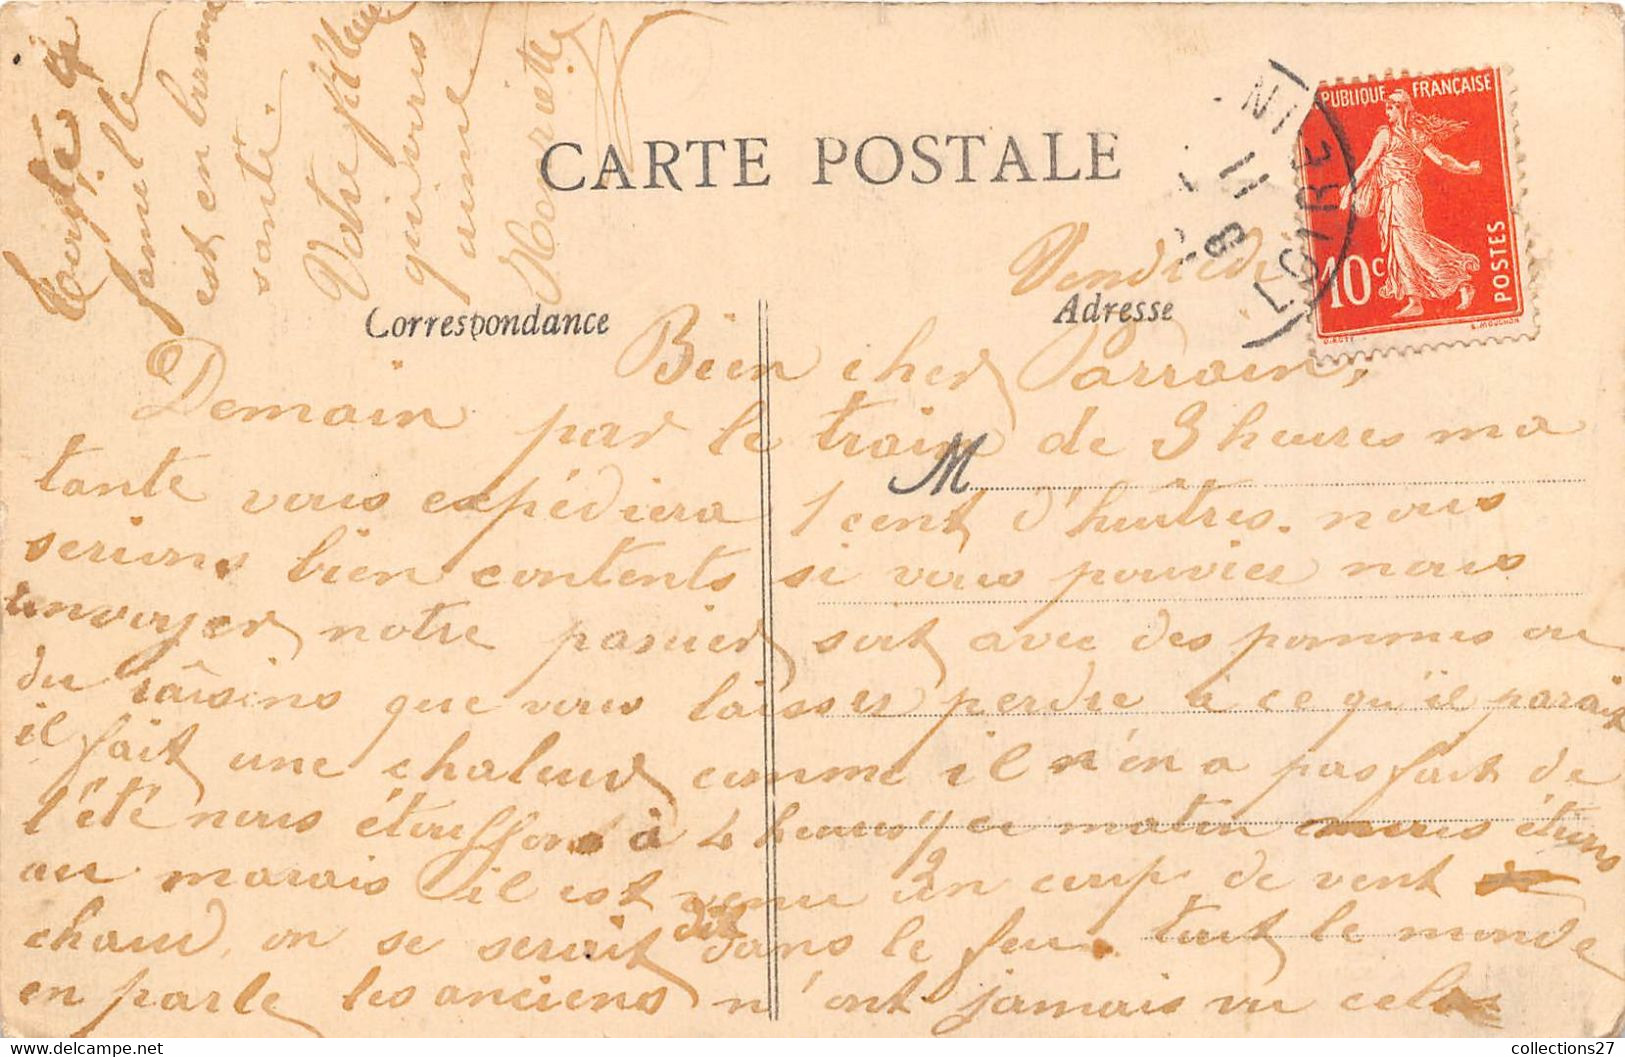 CARTE POSTALE
RÉPUBLIQUE FRANÇAISE
10c
POSTES
E. MOUCHON
8 11
LOIRE
Correspondance
Adresse
M
Vendredi
Bien cher Parrain,
Demain par le train de 3 heures ma
tante vous expédiera 1 cent d'huitres. nous
serions bien contents si vous pouvies nous
envoyer notre panier soit avec des pommes ou
du râisins que vous laisses perdre à ce qu'il parait
il fait une chaleur comme il n'en a pas fait de
l'été nous étouffons à 4 heures ce matin nous étions
au marais il est venu un coup de vent
chaud, on se serait dit dans le feu. tout le monde
en parle les anciens n'ont jamais vu cela
Toute la
famille
est en bonne
santé.
Votre filleule
qui vous
aime
Henriette
collections27